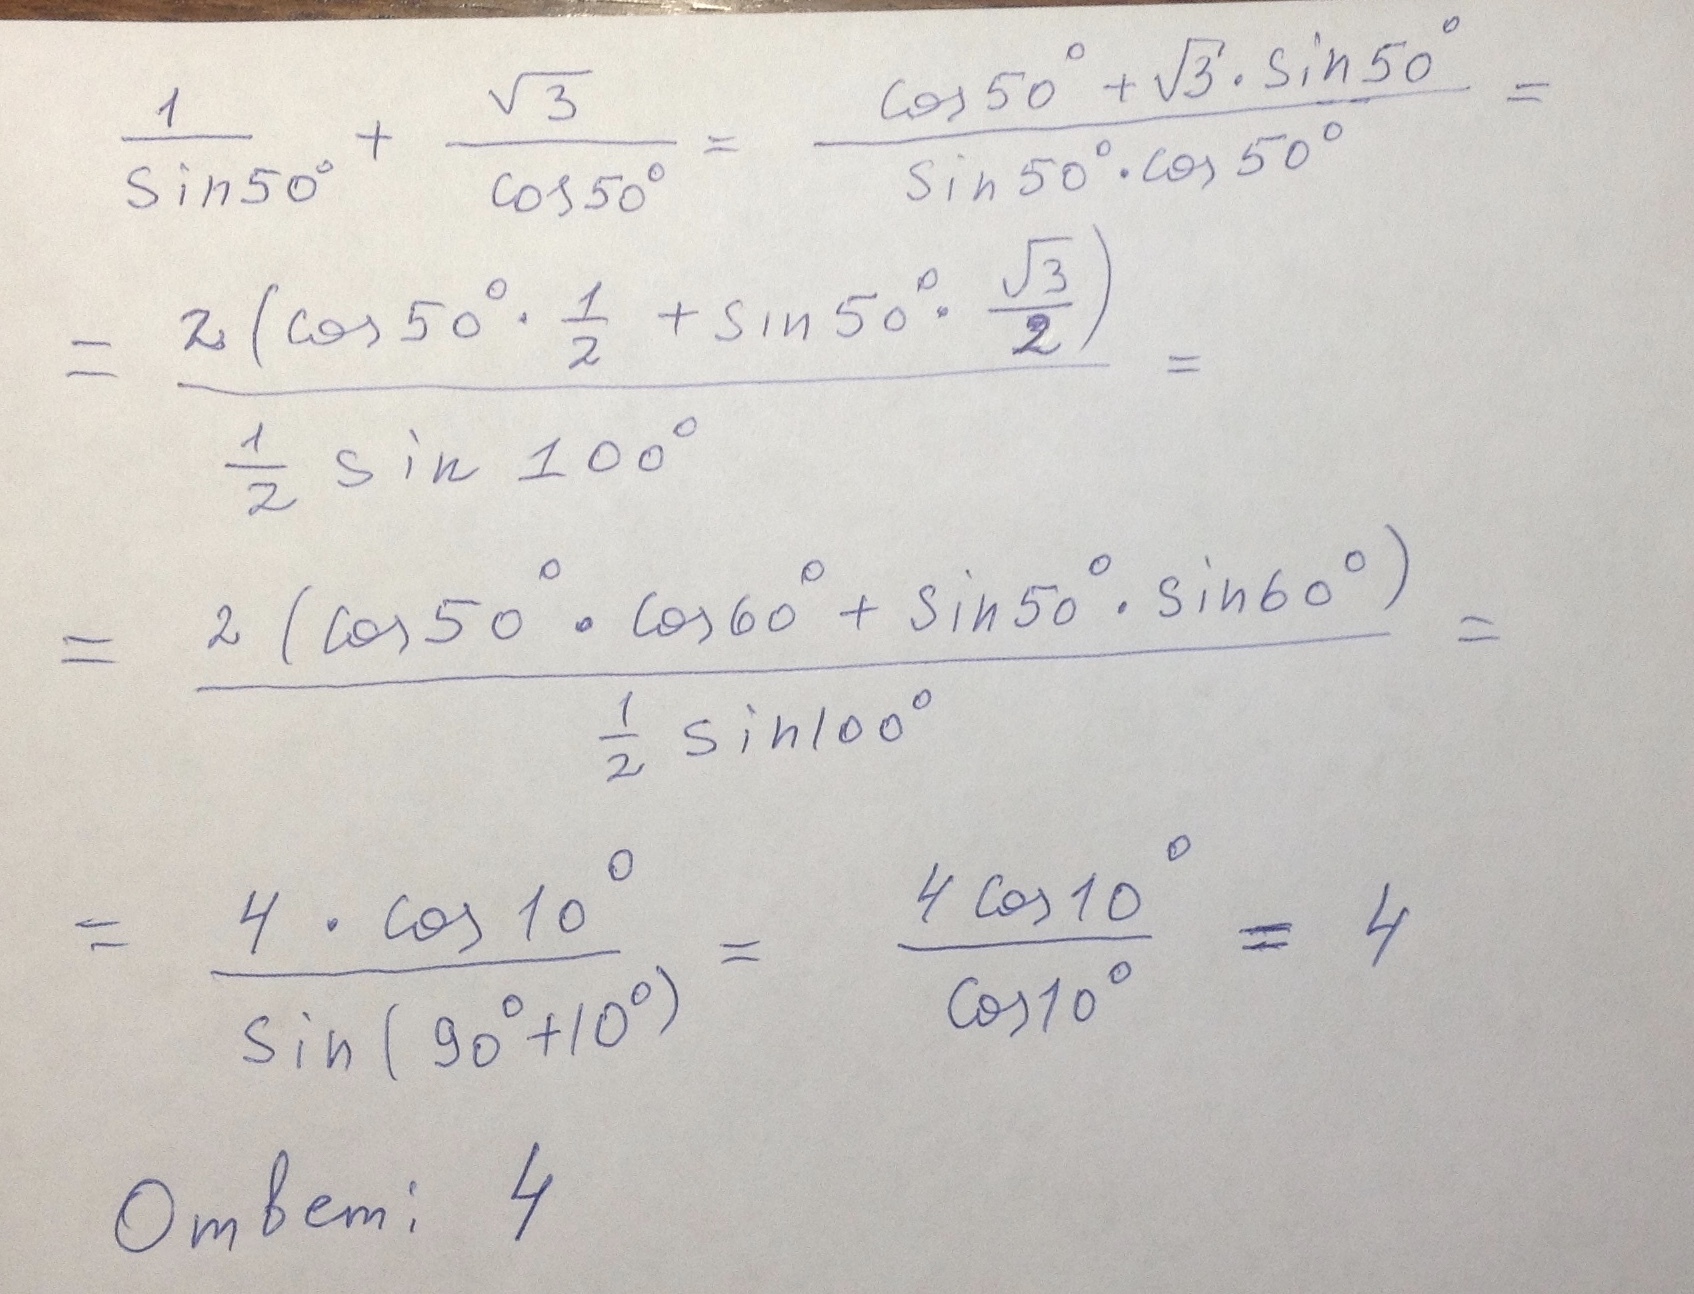 1/sin50° + √3/cos50° = (cos50° + √3 · sin50°)/(sin50° · cos50°) =
= 2(cos50° · 1/2 + sin50° · √3/2)/(1/2 sin 100°) =
= 2(cos50° · cos60° + sin50° · sin60°)/(1/2 sin100°) =
= 4 · cos10°/sin(90°+10°) = 4cos10°/cos10° = 4
Ответ: 4